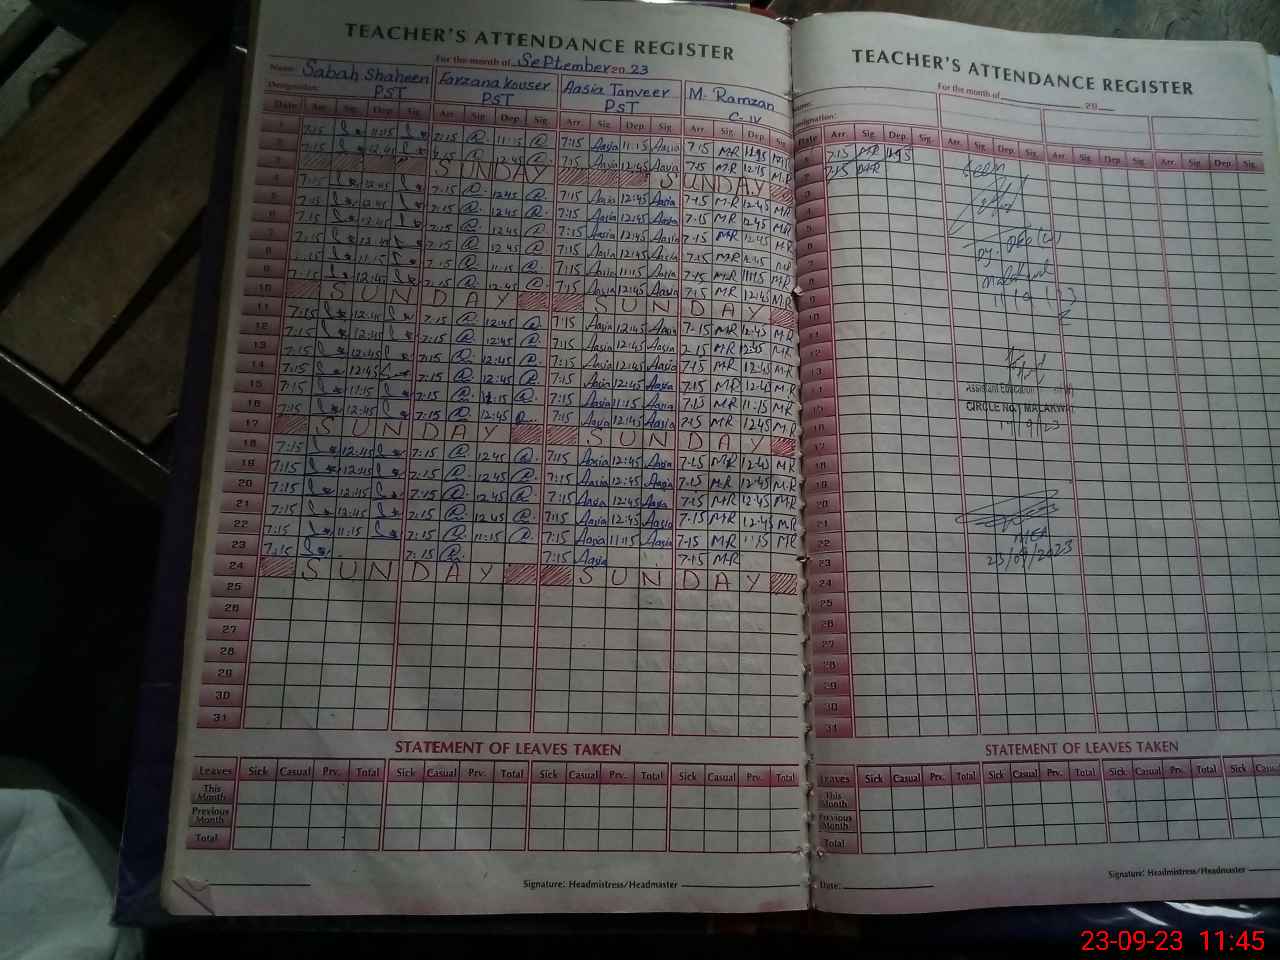 TEACHER'S ATTENDANCE REGISTER
For the month of September 2023
Name: Sabah Shaheen Farzana Kouser Aasia Tanveer M. Ramzan
Designation: PST PST PST C-IV
Date Arr. Sig. Dep. Sig. Arr. Sig. Dep. Sig. Arr. Sig. Dep. Sig. Arr. Sig. Dep. Sig.
1 7:15 11:15 7:15 @ 11:15 @ 7:15 Aasia 11:15 Aasia 7:15 MR
2 7:15 12:45 @ 12:45 @ 7:15 Aasia 12:45 Aasia 7:15 MR
SUNDAY SUNDAY
4 7:15 12:45 7:15 @ 12:45 @ 7:15 Aasia 12:45 Aasia 7:15 MR 12:45 MR
5 7:15 12:45 7:15 @ 12:45 @ 7:15 Aasia 12:45 Aasia 7:15 MR 12:45 MR
6 7:15 12:45 7:15 @ 12:45 @ 7:15 Aasia 12:45 Aasia 7:15 MR 12:45 MR
7 7:15 12:45 7:15 @ 12:45 @ 7:15 Aasia 12:45 Aasia 7:15 MR 12:45 MR
8 7:15 11:15 7:15 @ 11:15 @ 7:15 Aasia 11:15 Aasia 7:15 MR 11:15 MR
9 7:15 12:45 7:15 @ 12:45 @ 7:15 Aasia 12:45 Aasia 7:15 MR 12:45 MR
10 SUNDAY SUNDAY
11 7:15 12:45 7:15 @ 12:45 @ 7:15 Aasia 12:45 Aasia 7:15 MR 12:45 MR
12 7:15 12:45 7:15 @ 12:45 @ 7:15 Aasia 12:45 Aasia 7:15 MR 12:45 MR
13 7:15 12:45 7:15 @ 12:45 @ 7:15 Aasia 12:45 Aasia 7:15 MR 12:45 MR
14 7:15 12:45 7:15 @ 12:45 @ 7:15 Aasia 12:45 Aasia 7:15 MR 12:45 MR
15 7:15 11:15 7:15 @ @ 7:15 Aasia 11:15 Aasia 7:15 MR 11:15 MR
16 7:15 12:45 7:15 @ 12:45 @ 7:15 Aasia 12:45 Aasia 7:15 MR 12:45 MR
17 SUNDAY SUNDAY
18 7:15 12:45 7:15 @ 12:45 @ 7:15 Aasia 12:45 Aasia 7:15 MR 12:45 MR
19 7:15 12:45 7:15 @ 12:45 @ 7:15 Aasia 12:45 Aasia 7:15 MR 12:45 MR
20 7:15 12:45 7:15 @ 12:45 @ 7:15 Aasia 12:45 Aasia 7:15 MR 12:45 MR
21 7:15 12:45 7:15 @ 12:45 @ 7:15 Aasia 12:45 Aasia 7:15 MR 12:45 MR
22 7:15 11:15 7:15 @ 11:15 @ 7:15 Aasia 11:15 Aasia 7:15 MR 11:15 MR
23 7:15 7:15 @ 7:15 Aasia 7:15 MR
24 SUNDAY SUNDAY
25
26
27
28
29
30
31
STATEMENT OF LEAVES TAKEN
Leaves Sick Casual Prv. Total Sick Casual Prv. Total Sick Casual Prv. Total Sick Casual Prv. Total
This Month
Previous Month
Total
Signature: Headmistress/Headmaster
TEACHER'S ATTENDANCE REGISTER
For the month of 20
Name:
Designation:
Date Arr. Sig. Dep. Sig. Arr. Sig. Dep. Sig. Arr. Sig. Dep. Sig. Arr. Sig. Dep. Sig.
1 7:15 MR
2 7:15 MR
3
4
5
6
7
8
9
10
11
12
13
14
15
16
17
18
19
20
21
22
23
24
25
26
27
28
29
30
31
Seen
Assistant Education
CIRCLE NO. 1 MALAKWAL
MEA
23/09/2023
STATEMENT OF LEAVES TAKEN
Leaves Sick Casual Prv. Total Sick Casual Prv. Total Sick Casual Prv. Total Sick
This Month
Previous Month
Total
Date: Signature: Headmistress/Headmaster
23-09-23 11:45